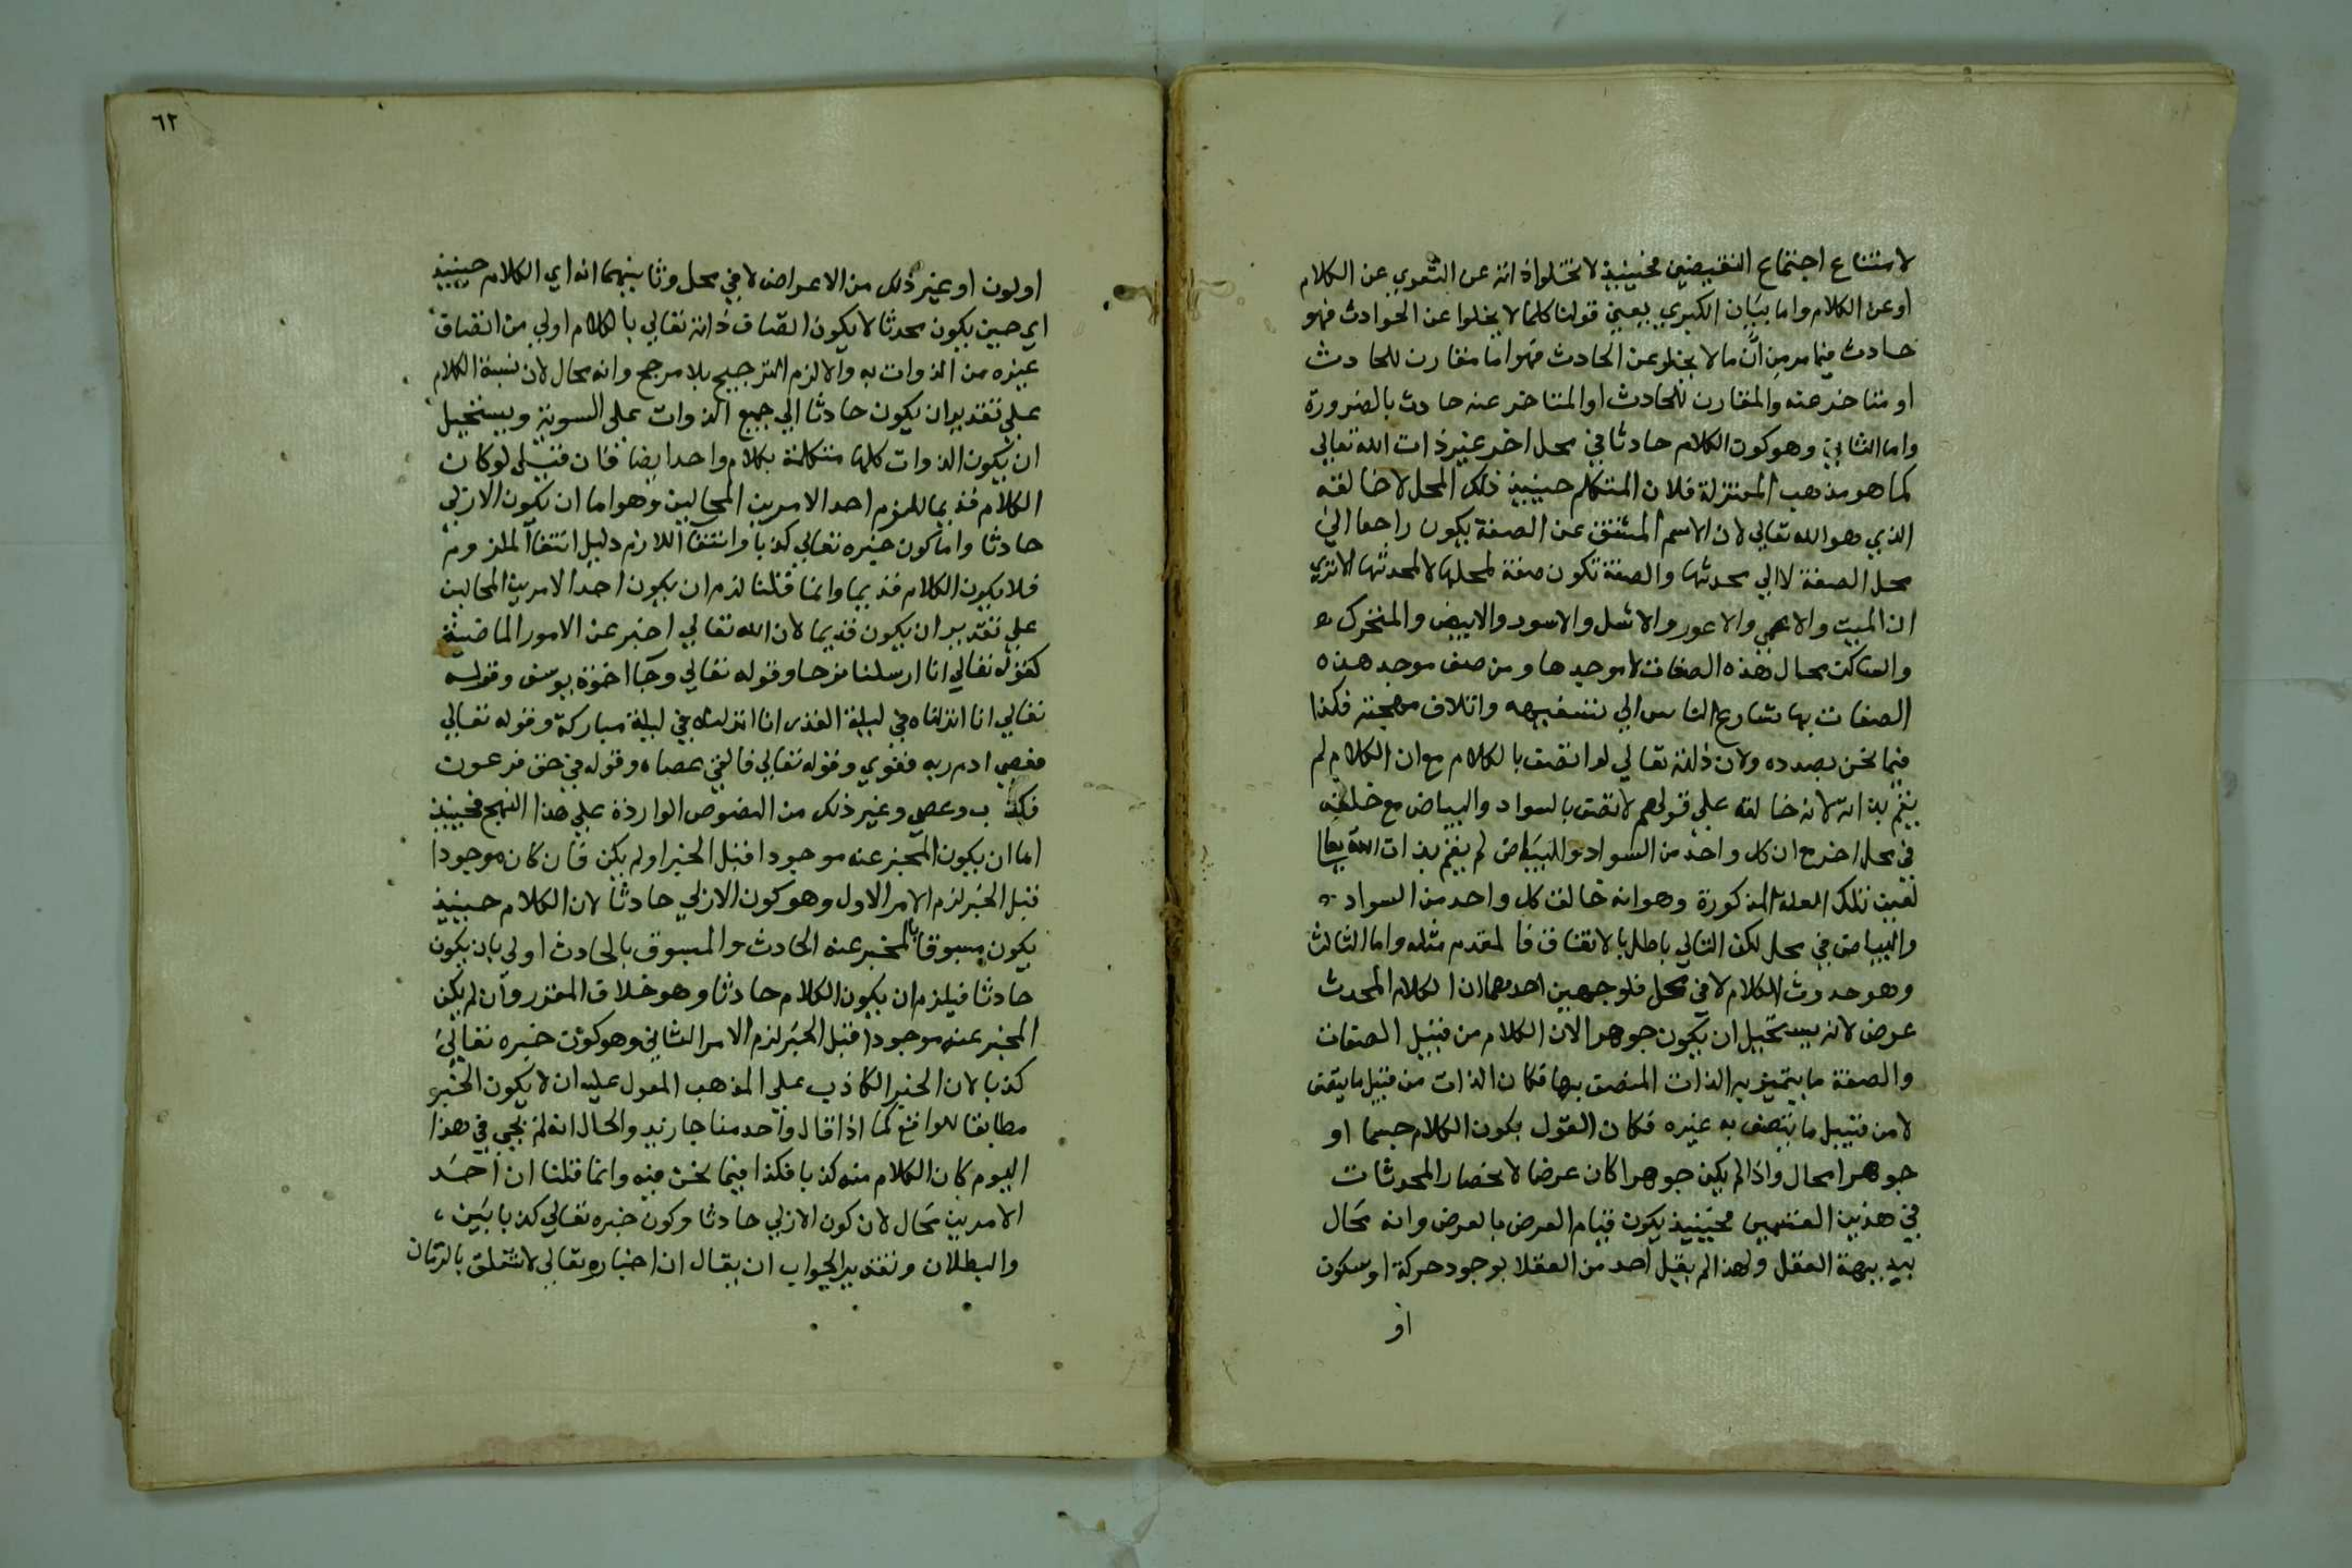 لامتناع اجتماع النقيضين فحينيذ لا تخلوا ذاته عن التعوي عن الكلام
اوعن الكلام واما بيان الكبري يعني قولنا كلما لا يخلوا عن الحوادث فهو
حادث فيما مر من ان ما لا يخلو عن الحادث فهو اما مقارن للحادث
او متاخر عنه والمقارن للحادث او المتاخر عنه حادث بالضرورة
واما الثاني وهو كون الكلام حادثا في محل اخر غير ذات الله تعالي
كما هو مذهب المعتزلة فلان المتكلم حينيذ ذلك المحل لا خالقه
الذي هو الله تعالي لان الاسم المشتق عن الصفة يكون راجعا الي
محل الصفة لا الي محدثها والصفة تكون صفة لمحلها لا لمحدثها الا تري
ان الميت والاعمي والاعور والاشل والاسود والابيض والمتحرك
والساكن محال هذه الصفات لا موجدها ومن صف موجد هذه
الصفات بها تسارع الناس الي تسفيهه واتلاف مهجته فكذا
فيما نحن بصدده ولان ذاته تعالي لو اتصف بالكلام مع ان الكلام لم
يقم بذاته لانه خالقه علي قولهم لاتصف بالسواد والبياض مع خلقه
في محل اخر مع ان كل واحد من السواد والبياض لم يقم بذات الله تعا
لعين تلك العلة المذكورة وهو انه خالق كل واحد من السواد
والبياض في محل لكن التالي باطل بالاتفاق فالمقدم مثله واما الثالث
وهو حدوث الكلام لا في محل فلوجهين احدهما ان الكلام المحدث
عرض لانه يستحيل ان يكون جوهرا لان الكلام من قبيل الصفات
والصفة ما يتميز به الذات المتصف بها فكان الذات من قبيل ما يتصف
لا من قبيل ما يتصف به غيره فكان القول بكون الكلام جسما او
جوهرا محال واذا لم يكن جوهرا كان عرضا لانحصار المحدثات
في هذين القسمين فحينيذ يكون قيام العرض بالعرض وانه محال
ببديهة العقل ولهذا لم يقبل احد من العقلا بوجود حركة او سكون
او
٦٢
اولون او غير ذلك من الاعراض لا في محل وثانيهما انه اي الكلام حينيذ
اي حين يكون محدثا لا يكون اتصاف ذاته تعالي بالكلام اولي من اتصاف
غيره من الذوات به والا لزم الترجيح بلا مرجح وانه محال لان نسبة الكلام
علي تقدير ان يكون حادثا الي جميع الذوات علي السوية ويستحيل
ان يكون الذوات كلها متكلمة بكلام واحد ايضا فان قيل لو كان
الكلام قديما للزم احد الامرين المحالين وهو اما ان يكون الازلي
حادثا واما كون خبره تعالي كذبا وانتفا اللازم دليل انتفا الملزوم
فلا يكون الكلام قديما وانما قلنا لزم ان يكون احد الامرين المحالين
علي تقدير ان يكون قديما لان الله تعالي اخبر عن الامور الماضية
كقوله تعالي انا ارسلنا نوحا وقوله تعالي وجا اخوة يوسف وقوله
تعالي انا انزلناه في ليلة القدر انا انزلناه في ليلة مباركة وقوله تعالي
فعصي ادم ربه فغوي وقوله تعالي فالقي عصاه وقوله في حق فرعون
فكذب وعصي وغير ذلك من النصوص الواردة علي هذا النهج فحينيذ
اما ان يكون المخبر عنه موجودا قبل الخبر او لم يكن فان كان موجودا
قبل الخبر لزم الامر الاول وهو كون الازلي حادثا لان الكلام حينيذ
يكون مسبوقا بالمخبر عنه الحادث والمسبوق بالحادث اولي بان يكون
حادثا فيلزم ان يكون الكلام حادثا وهو خلاف المقرر وان لم يكن
المخبر عنه موجودا قبل الخبر لزم الامر الثاني وهو كون خبره تعالي
كذبا لان الخبر الكاذب علي المذهب المعول عليه ان لا يكون الخبر
مطابقا للواقع كما اذا قال واحد منا جا زيد والحال انه لم يجي في هذا
اليوم كان الكلام منه كذبا فكذا فيما نحن فيه وانما قلنا ان احد
الامرين محال لان كون الازلي حادثا وكون خبره تعالي كذبا بين
والبطلان وتقدير الجواب ان يقال ان اخباره تعالي لا تتعلق بالزمان